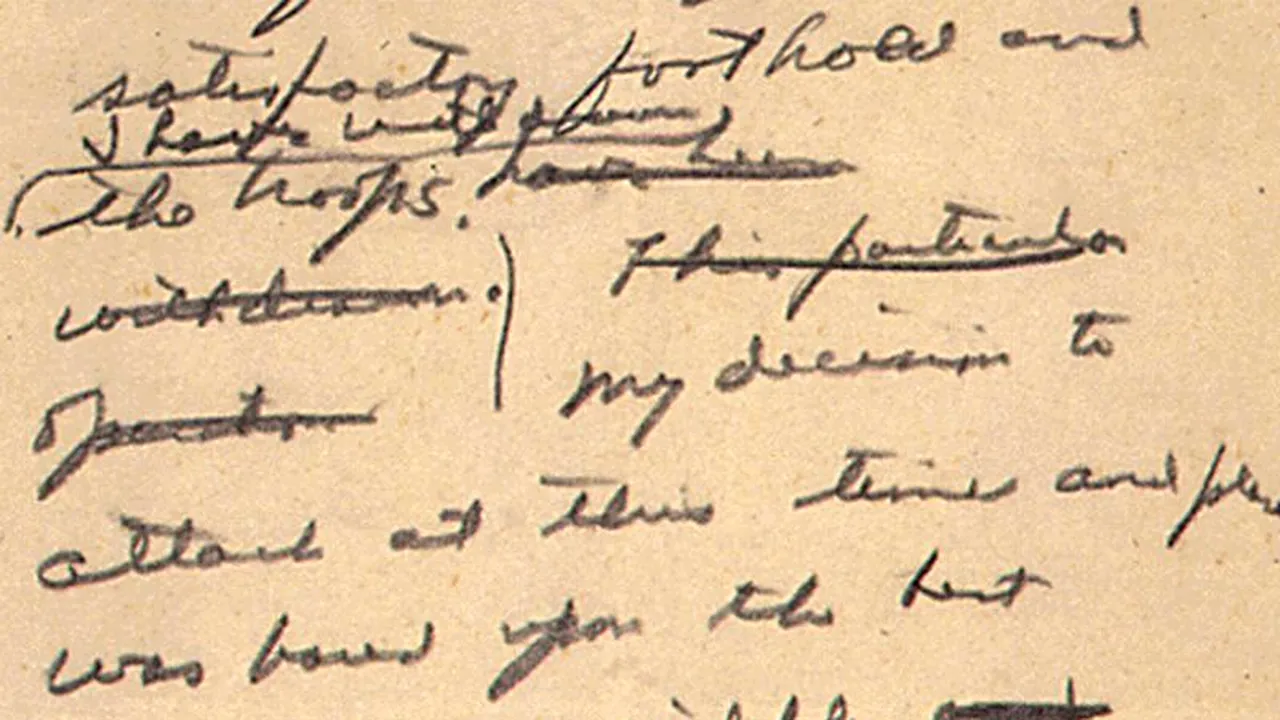 satisfactory foothold and
I have withdrawn
the troops. have been
withdrawn. This particular
operation My decision to
attack at this time and pla
was based upon the best